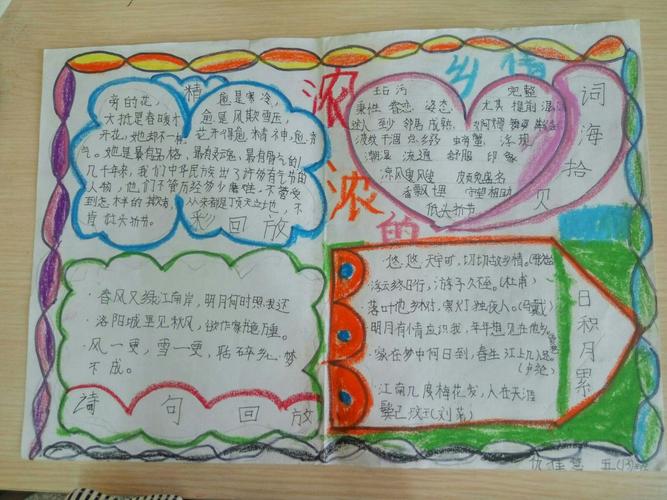 浓浓的
乡情
精
旁的花,
大抵是春暖才
开花,她却不一样
愈是寒冷,
愈是风欺雪压,
花开得愈精神,愈秀
气。她是最有品格、最有灵魂、最有骨气的
几千年来,我们中华民族出了许多有气节的
人物,他们不管历经多少磨难,不管受
到怎样的欺凌,从来都是顶天立地,不
肯低头折节。
彩回放
词海拾贝
秉性 眷恋 姿态
完整
尤其 提前
至少 邻居 成熟
凉风飕飕
香飘十里
守望相助
低头折节
·春风又绿江南岸,明月何时照我还
·洛阳城里见秋风,欲作家书意万重。
·风一更,雪一更,聒碎乡心梦
不成。
诗句回放
·悠悠天宇旷,切切故乡情。
浮云终日行,游子久不至。(杜甫)
落叶他乡树,寒灯独夜人。(马戴)
明月有情应识我,年年相见在他乡
·家在梦中何日到,春生江上几人还。
(卢纶)
·江南几度梅花发,人在天涯
鬓已斑。(刘著)
日积月累